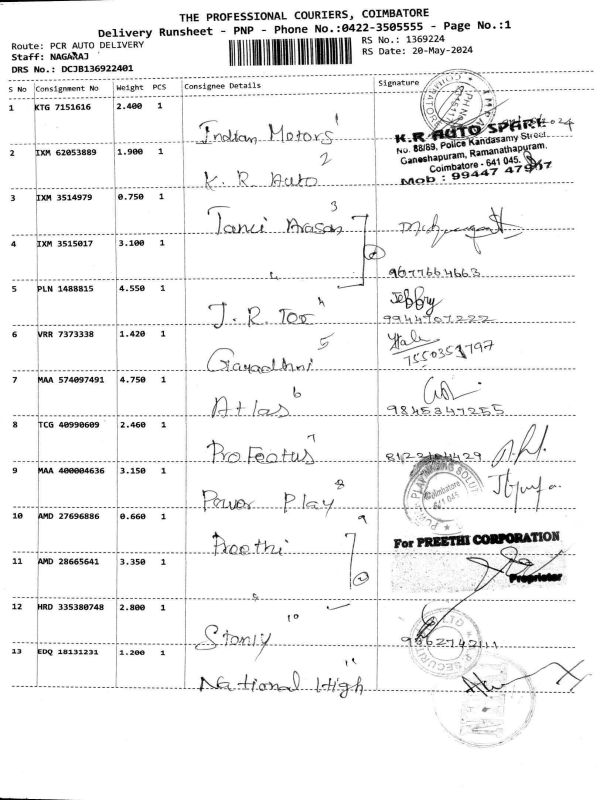 THE PROFESSIONAL COURIERS, COIMBATORE
Delivery Runsheet - PNP - Phone No.:0422-3505555 - Page No.:1
Route: PCR AUTO DELIVERY
RS No.: 1369224
Staff: NAGARAJ
RS Date: 20-May-2024
DRS No.: DCJB136922401
S No Consignment No Weight PCS Consignee Details Signature
1 KTG 7151616 2.400 1
Indian Motors 1
K.R AUTO SPARE
No. 88/89, Police Kandasamy Street
Ganeshapuram, Ramanathapuram,
Coimbatore - 641 045.
Mob : 99447 47907
2 IXM 62053889 1.900 1
K. R. Auto 2
3 IXM 3514979 0.750 1
3
4 IXM 3515017 3.100 1
9677664663
5 PLN 1488815 4.550 1
J. R. Toe 4
Jeffry
9944707222
6 VRR 7373338 1.420 1
5
7550351797
7 MAA 574097491 4.750 1
Atlas 6
9845347255
8 TCG 40990609 2.460 1
7
9 MAA 400004636 3.150 1
Power Play 8
Coimbatore
641 045
10 AMD 27696886 0.660 1
Preethi 9
For PREETHI CORPORATION
11 AMD 28665641 3.350 1
Proprietor
12 HRD 335380748 2.800 1
Stanly 10
13 EDQ 18131231 1.200 1
National High 11